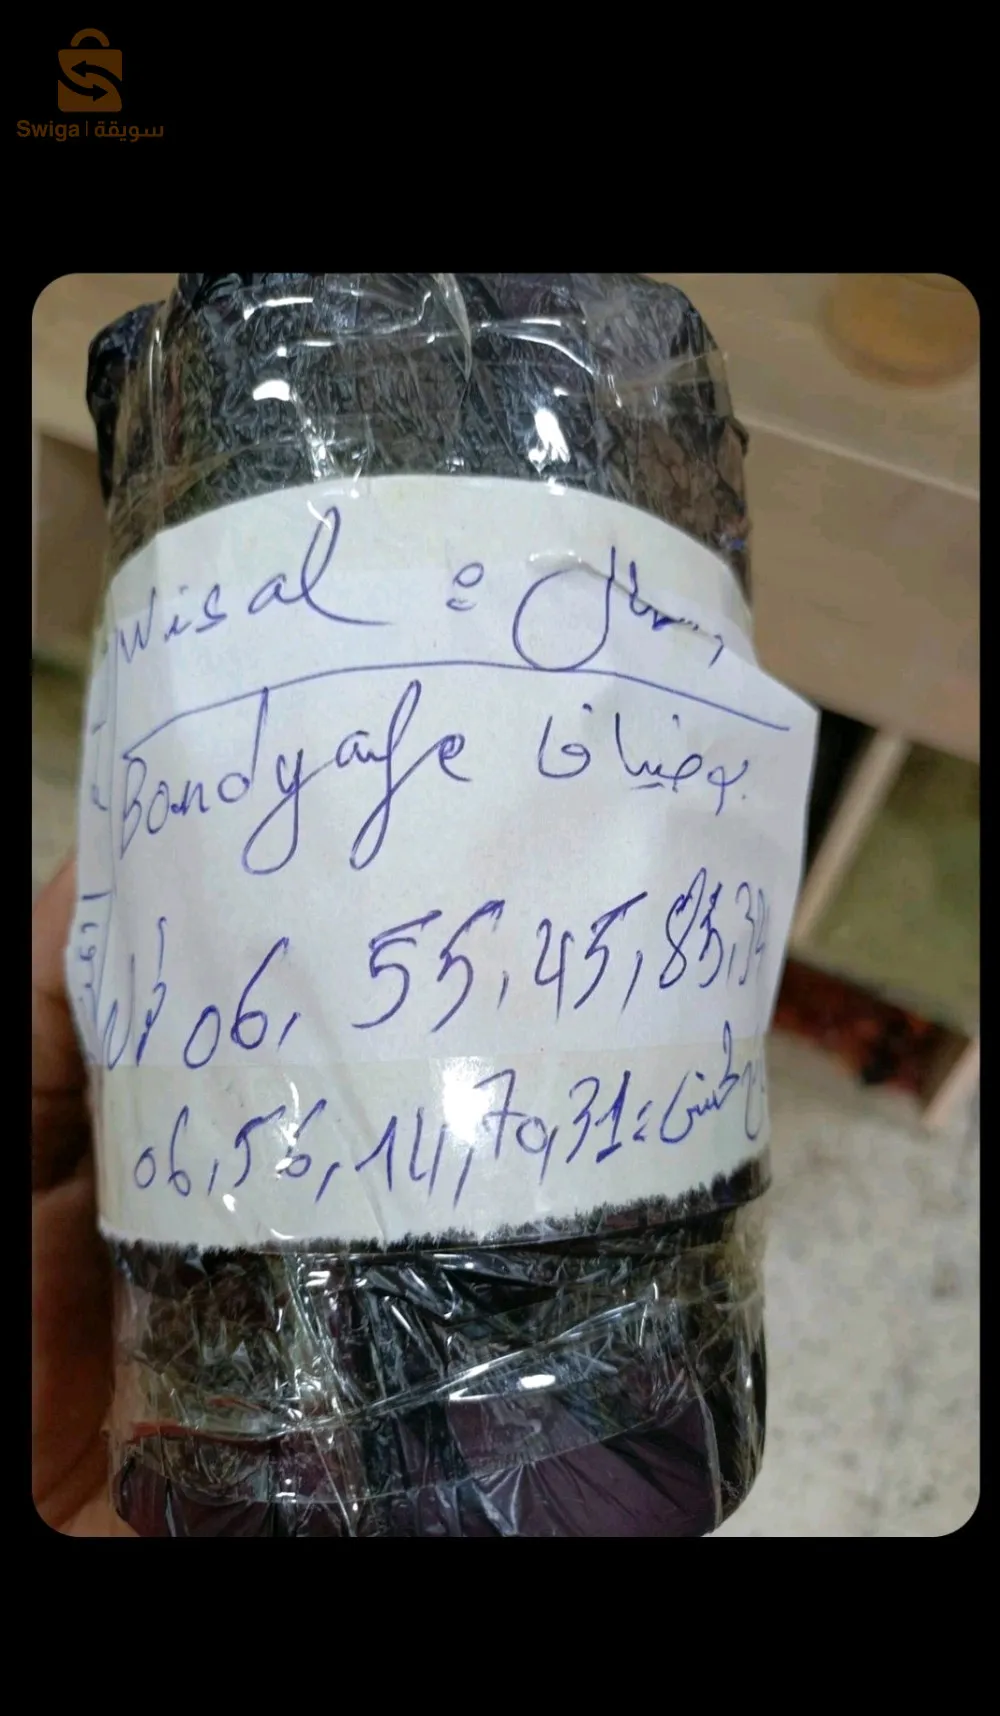 Swiga | سويقة
Wisal : وصال
Bondyafe بوضيافا
06, 55, 45, 85, 34
06, 56, 14, 70, 31 :